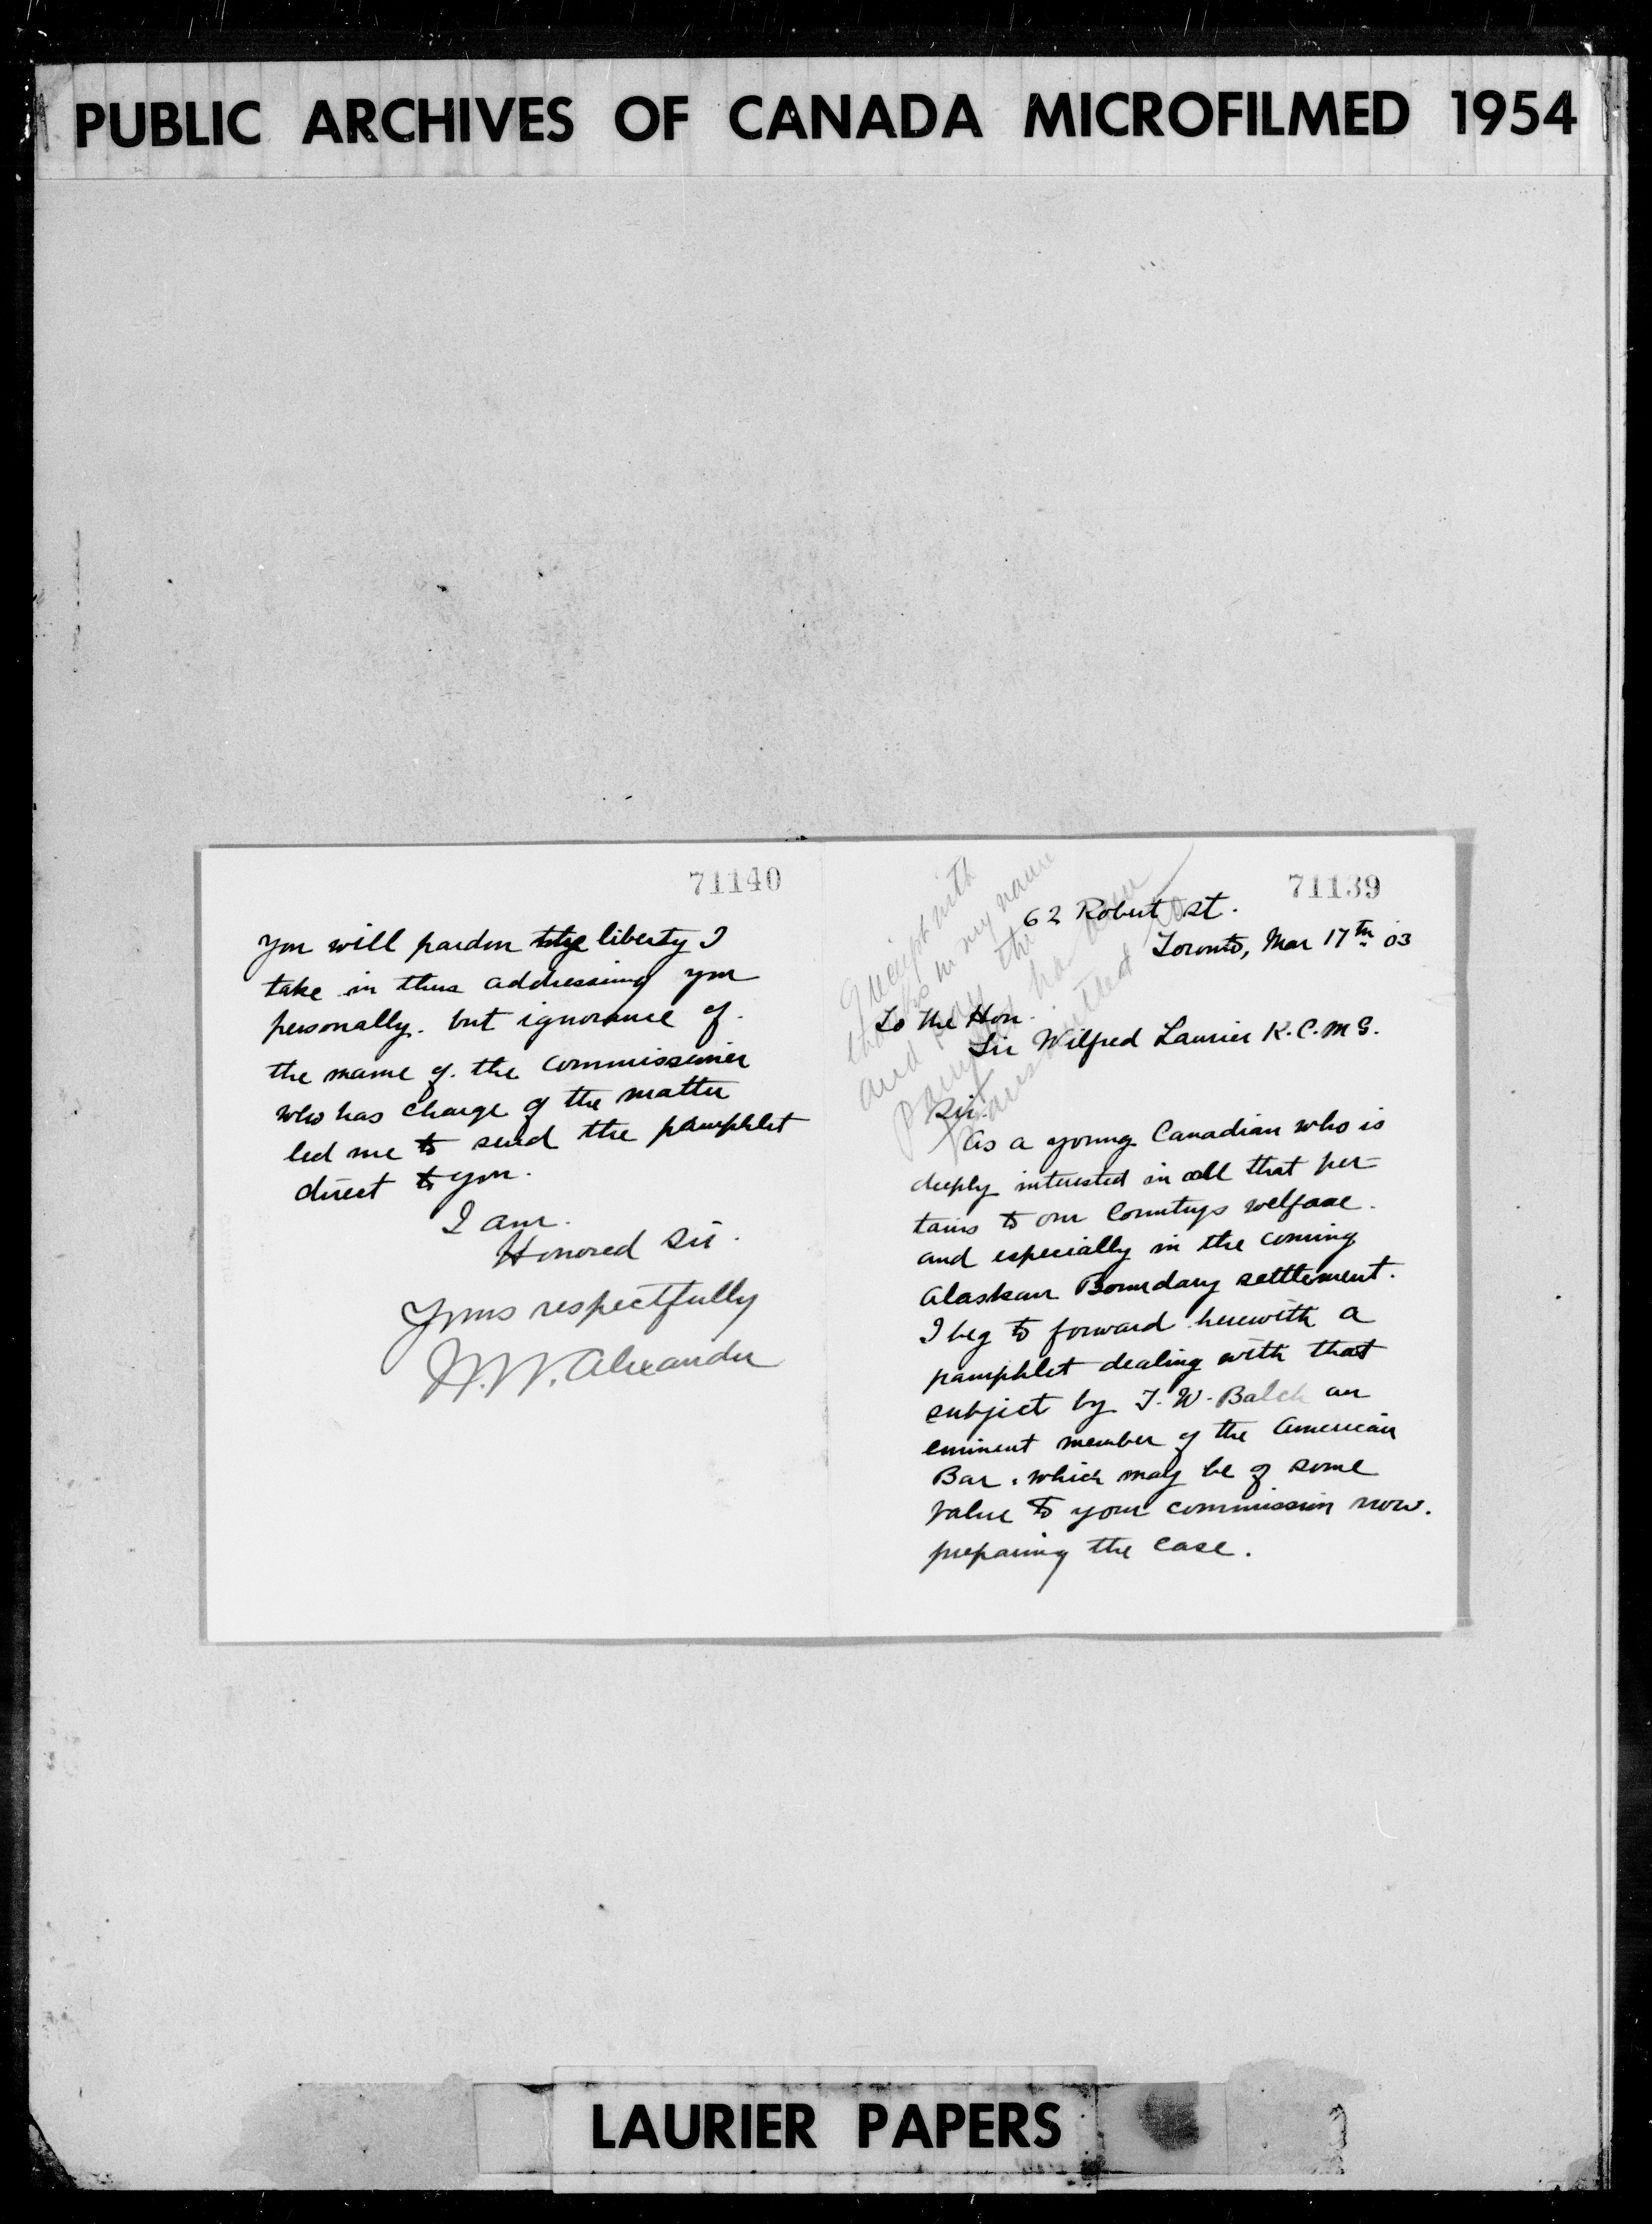 PUBLIC ARCHIVES OF CANADA MICROFILMED 1954
71139
62 Robert St.
Toronto, Mar 17th 03
To the Hon.
Sir Wilfred Laurier K.C.M.G.
Sir.
As a young Canadian who is
deeply interested in all that per-
tains to our Countrys welfare.
and especially in the coming
Alaskan Boundary settlement.
I beg to forward herewith a
pamphlet dealing with that
subject by T. W. Balch an
eminent member of the American
Bar. which may be of some
value to your commission now.
preparing the case.
receipt with
thanks in my name
and say the
pamphlet has been
71140
You will pardon the liberty I
take in thus addressing you
personally. but ignorance of.
the name of. the Commissioner
who has charge of the matter
led me to send the pamphlet
direct to you.
I am.
Honored Sir.
Yours respectfully
W. Alexander
LAURIER PAPERS